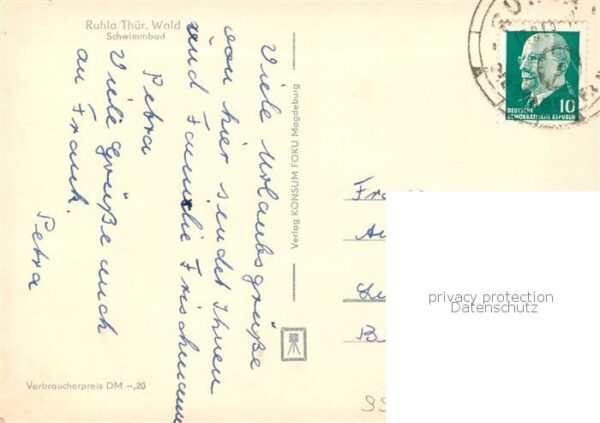 Ruhla/Thür. Wald
Schwimmbad
Viele Urlaubsgrüße
von hier sendet Ihnen
und Familie Frischmann
Petra
Viele Grüße auch
an Frank.
Petra
Verlag KONSUM FOKU Magdeburg
Verbraucherpreis DM —,20
10
DEUTSCHE
DEMOKRATISCHE REPUBLIK
privacy protection
Datenschutz